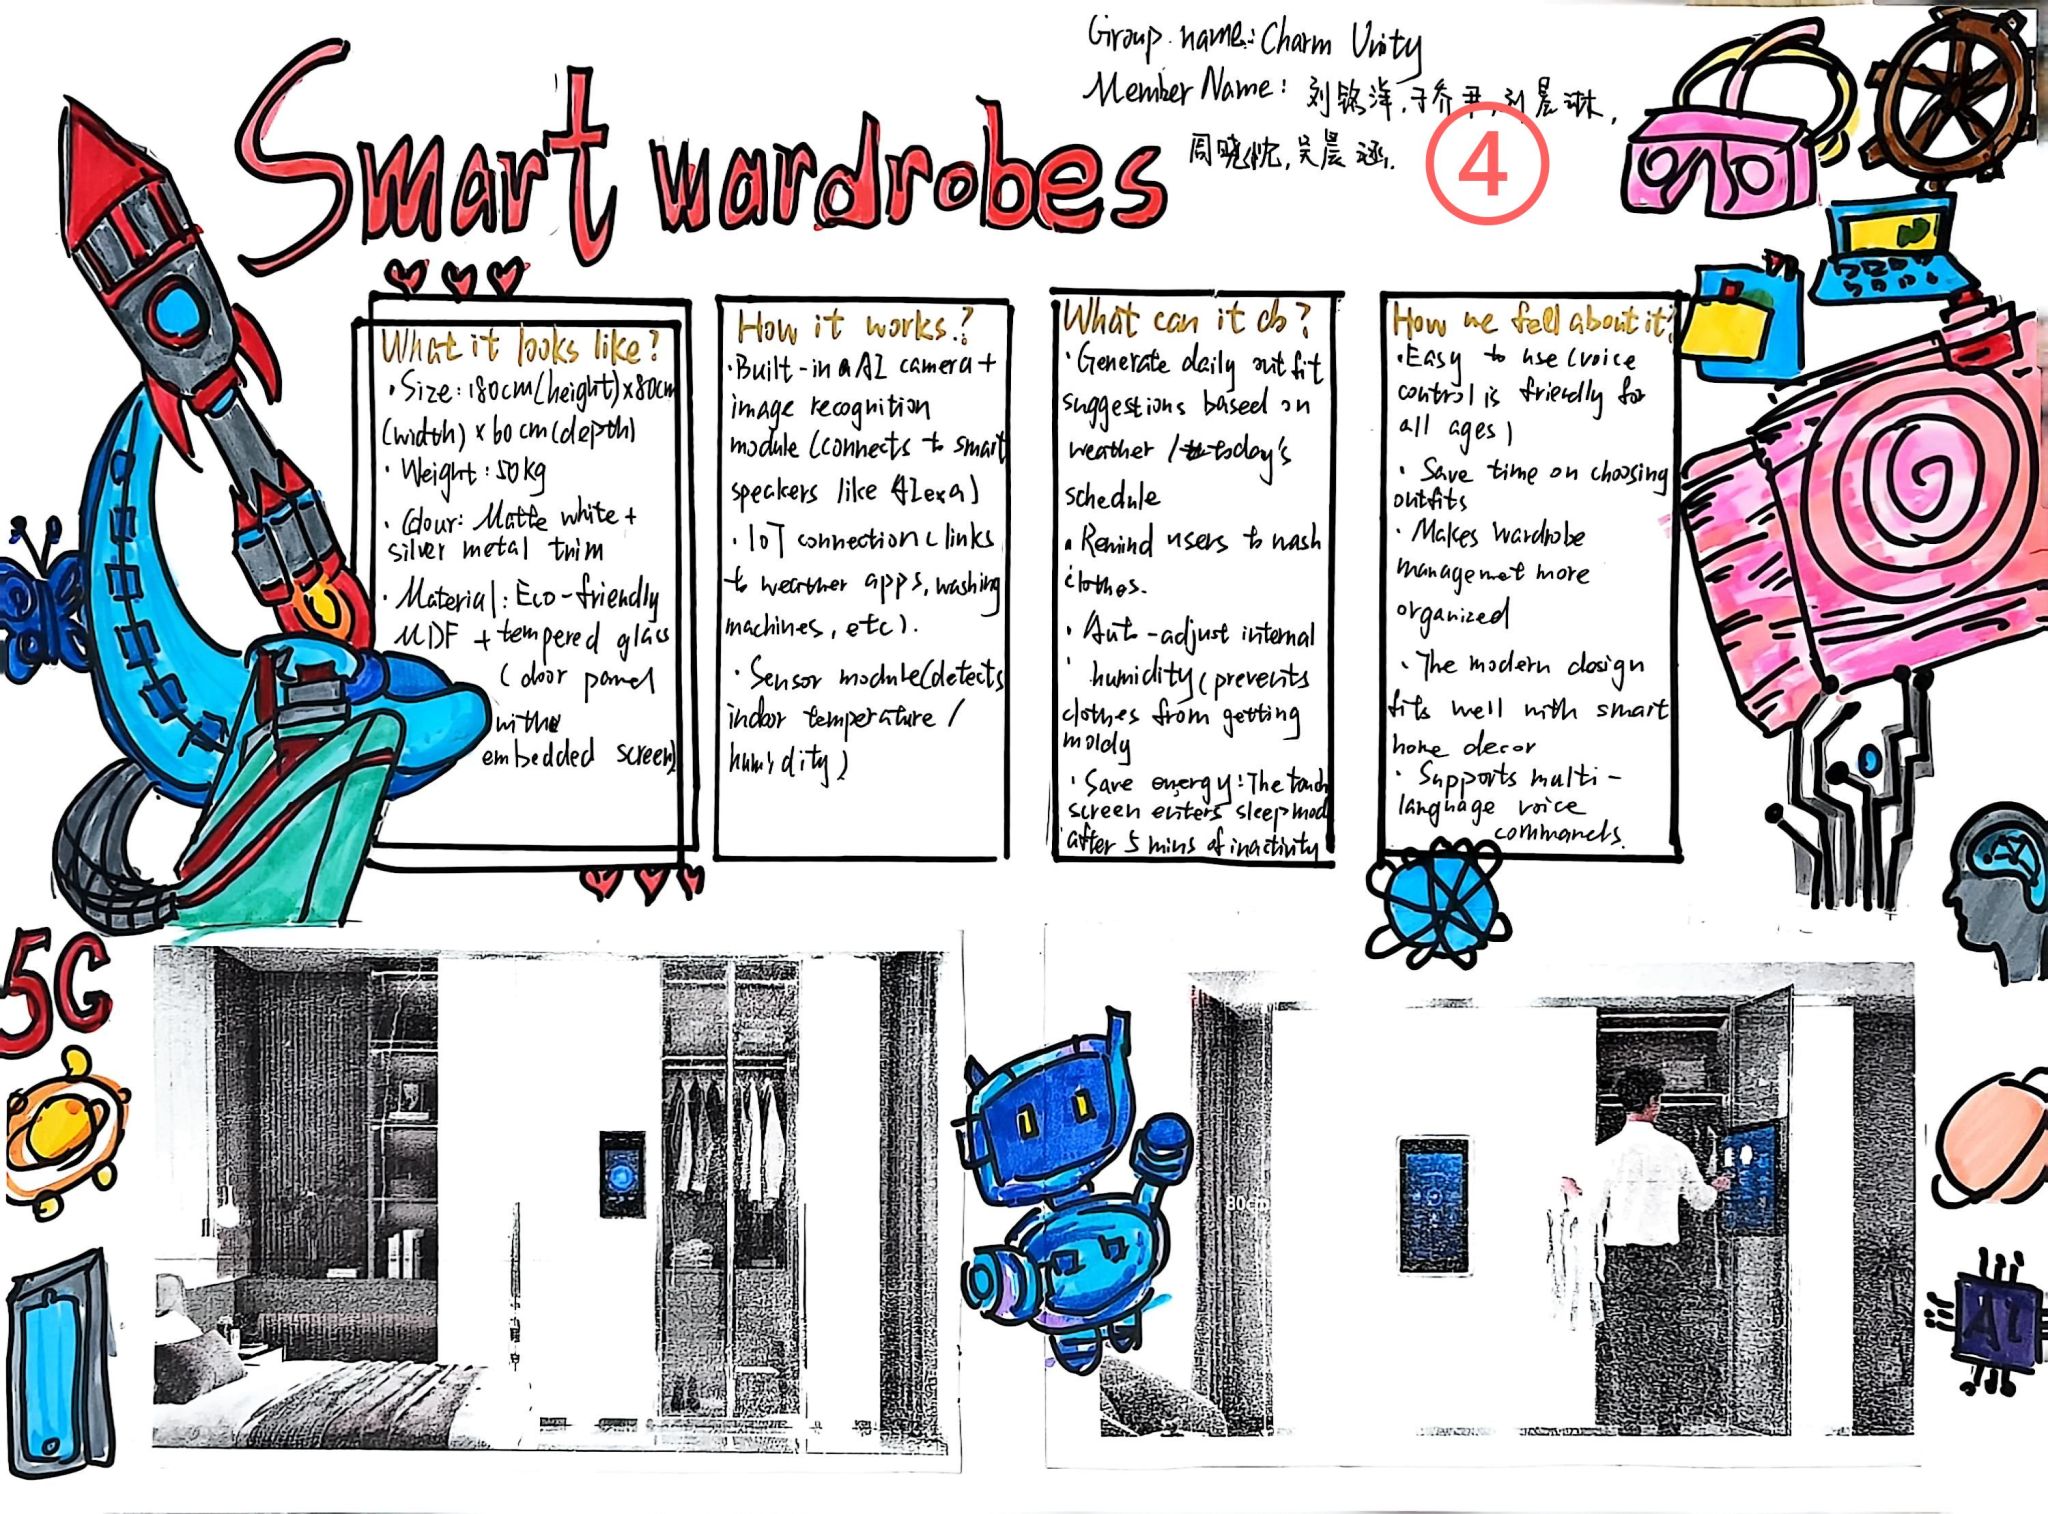 Group name: Charm Unity
Member Name: 刘铭洋,于乔尹,刘晨琳,
周晓忱,吴晨涵.
④
Smart wardrobes
What it looks like?
• Size: 180cm(height)×80cm
(width)×60cm(depth)
• Weight: 50kg
• Colour: Matte white +
silver metal trim
• Material: Eco-friendly
MDF + tempered glass
(door panel
with
embedded screen)
How it works?
• Built-in AI camera +
image recognition
module (connects to smart
speakers like Alexa)
• IoT connection (links
to weather apps, washing
machines, etc).
• Sensor module (detects
indoor temperature /
humidity)
What can it do?
• Generate daily outfit
suggestions based on
weather / today's
schedule
• Remind users to wash
clothes.
• Auto-adjust internal
humidity (prevents
clothes from getting
moldy
• Save energy: The touch
screen enters sleep mod
after 5 mins of inactivity
How we fell about it?
• Easy to use (voice
control is friendly for
all ages)
• Save time on choosing
outfits
• Makes wardrobe
managemet more
organized
• The modern design
fits well with smart
home decor
• Supports multi-
language voice
commands.
5G
80cm
AI